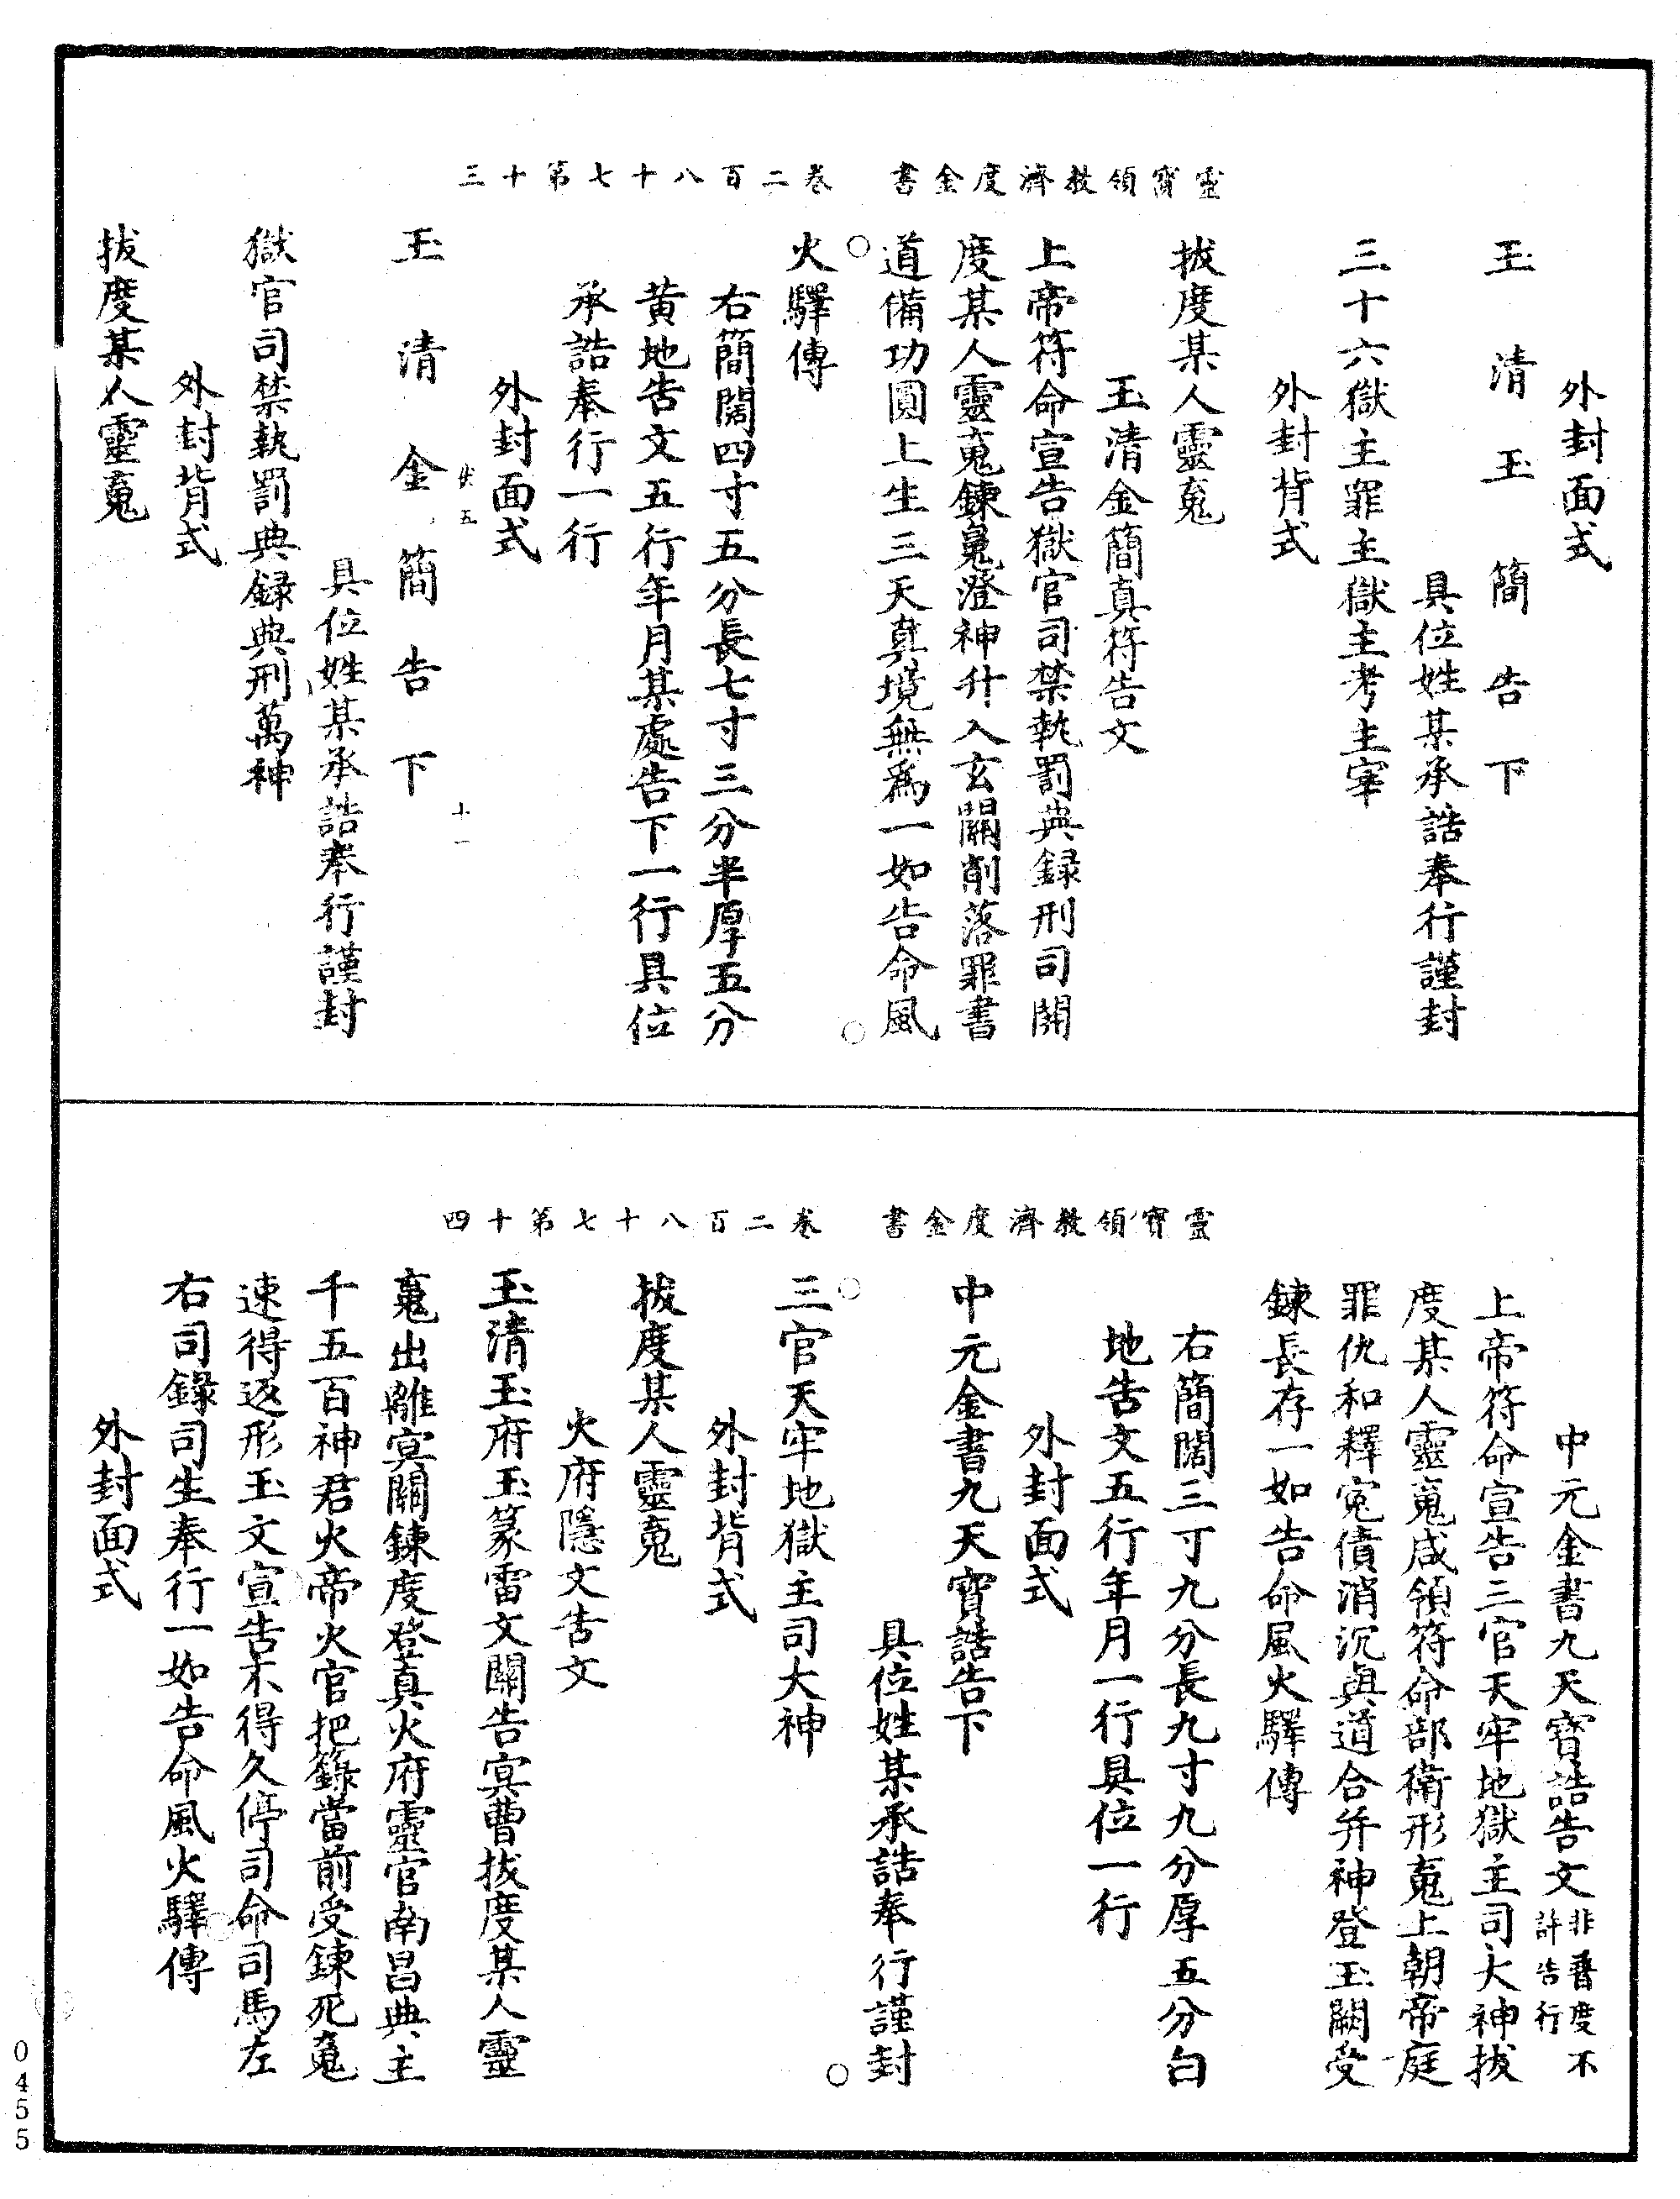 靈寶領教濟度金書　卷二百八十七第十三
外封面式
玉清玉簡告下
具位姓某承誥奉行謹封
三十六獄主罪主獄主考主宰
外封背式
拔度某人靈䰟
玉清金簡真符告文
上帝符命宣告獄官司禁執罰典録刑司開
度某人靈䰟鍊䰟澄神升入玄關削落罪書
道備功圓上生三天真境無爲一如告命風
火驛傳
右簡闊四寸五分長七寸三分半厚五分
黄地告文五行年月某處告下一行具位
承誥奉行一行
外封面式
五
十一
玉清金簡告下
具位姓某承誥奉行謹封
獄官司禁執罰典録典刑萬神
外封背式
拔度某人靈䰟
靈寶領教濟度金書　卷二百八十七第十四
中元金書九天寳誥告文非普度不許告行
上帝符命宣告三官天牢地獄主司大神拔
度某人靈䰟咸領符命部衛形䰟上朝帝庭
罪仇和釋寃債消沉與道合并神登玉闕受
鍊長存一如告命風火驛傳
右簡闊三寸九分長九寸九分厚五分白
地告文五行年月一行具位一行
外封面式
中元金書九天寳誥告下
具位姓某承誥奉行謹封
三官天牢地獄主司大神
外封背式
拔度某人靈䰟
火府隱文告文
玉清玉府玉篆雷文關告冥曹拔度某人靈
䰟出離冥關鍊度登真火府靈官南昌典主
千五百神君火帝火官把籙當前受鍊死䰟
速得返形玉文宣告不得久停司命司馬左
右司錄司生奉行一如告命風火驛傳
外封面式
0455